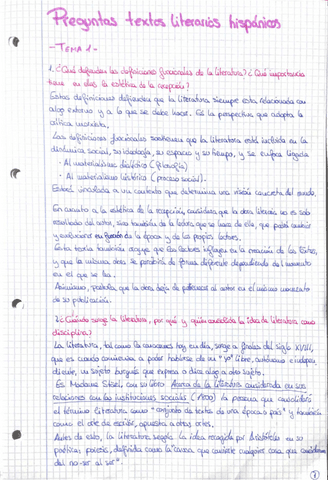 Preguntas textos literarios hispánicos
- TEMA 1 -
1. ¿Qué defienden las definiciones funcionales de la literatura? ¿Qué importancia
tiene en ellas la estética de la recepción?
Estas definiciones defienden que la literatura siempre está relacionada con
algo externo y a lo que se debe hacer. Es la perspectiva que adopta la
crítica marxista.
Las definiciones funcionales sostienen que la literatura está incluida en la
dinámica social, su ideología, su espacio y su tiempo, y se enfoca ligada
· Al materialismo dialéctico (filosofía)
· Al materialismo histórico (proceso social).
Estará vinculada a un contexto que determina una visión concreta del mundo.
En cuanto a la estética de la recepción, considera que la obra literaria no es solo
resultado del autor, sino también de la lectura que se hace de ella, que podrá cambiar
y evolucionar en función de la época y de los propios lectores.
Esta teoría también arguye que los lectores influyen en la creación de los textos,
y que la misma obra se percibirá de forma diferente dependiendo del momento
en el que se lea.
Asimismo, postula que la obra deja de pertenecer al autor en el mismo momento
de su publicación.
2. ¿Cuándo surge la literatura, por qué y quién consolida la idea de literatura como
disciplina?
La literatura, tal como la conocemos hoy en día, surge a finales del siglo XVIII,
que es cuando comienza a poder hablarse de un "yo" libre, autónomo e indepen-
diente, un sujeto burgués que expresa o dice algo a otro sujeto.
Es Madame Staël, con su libro Acerca de la literatura considerada en sus
relaciones con las instituciones sociales (1800) la persona que consolidará
el término literatura como "conjunto de textos de una época o país" y también
como el arte de escribir, opuesta a otras artes.
Antes de esto, la literatura seguía la idea recogida por Aristóteles en su
poética: poiesis, definida como la "causa que convierte cualquier cosa que consideremos
del no-ser al ser".
1